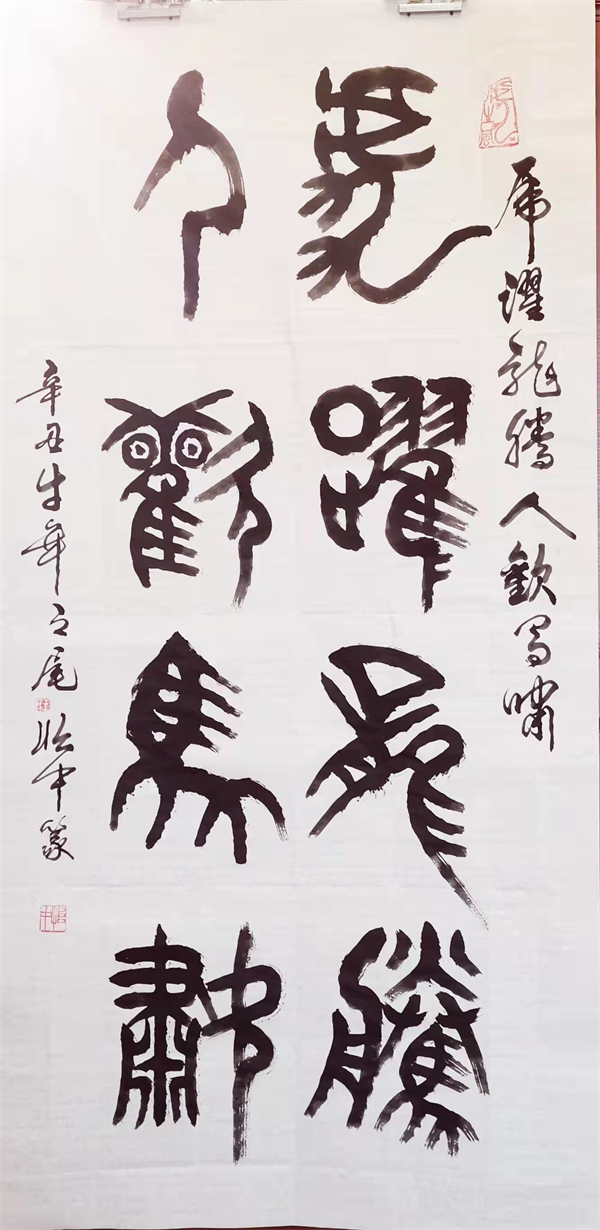 虎躍龍騰人歡馬嘯
虎躍龍騰
人歡馬嘯
辛丑牛年之尾中篆